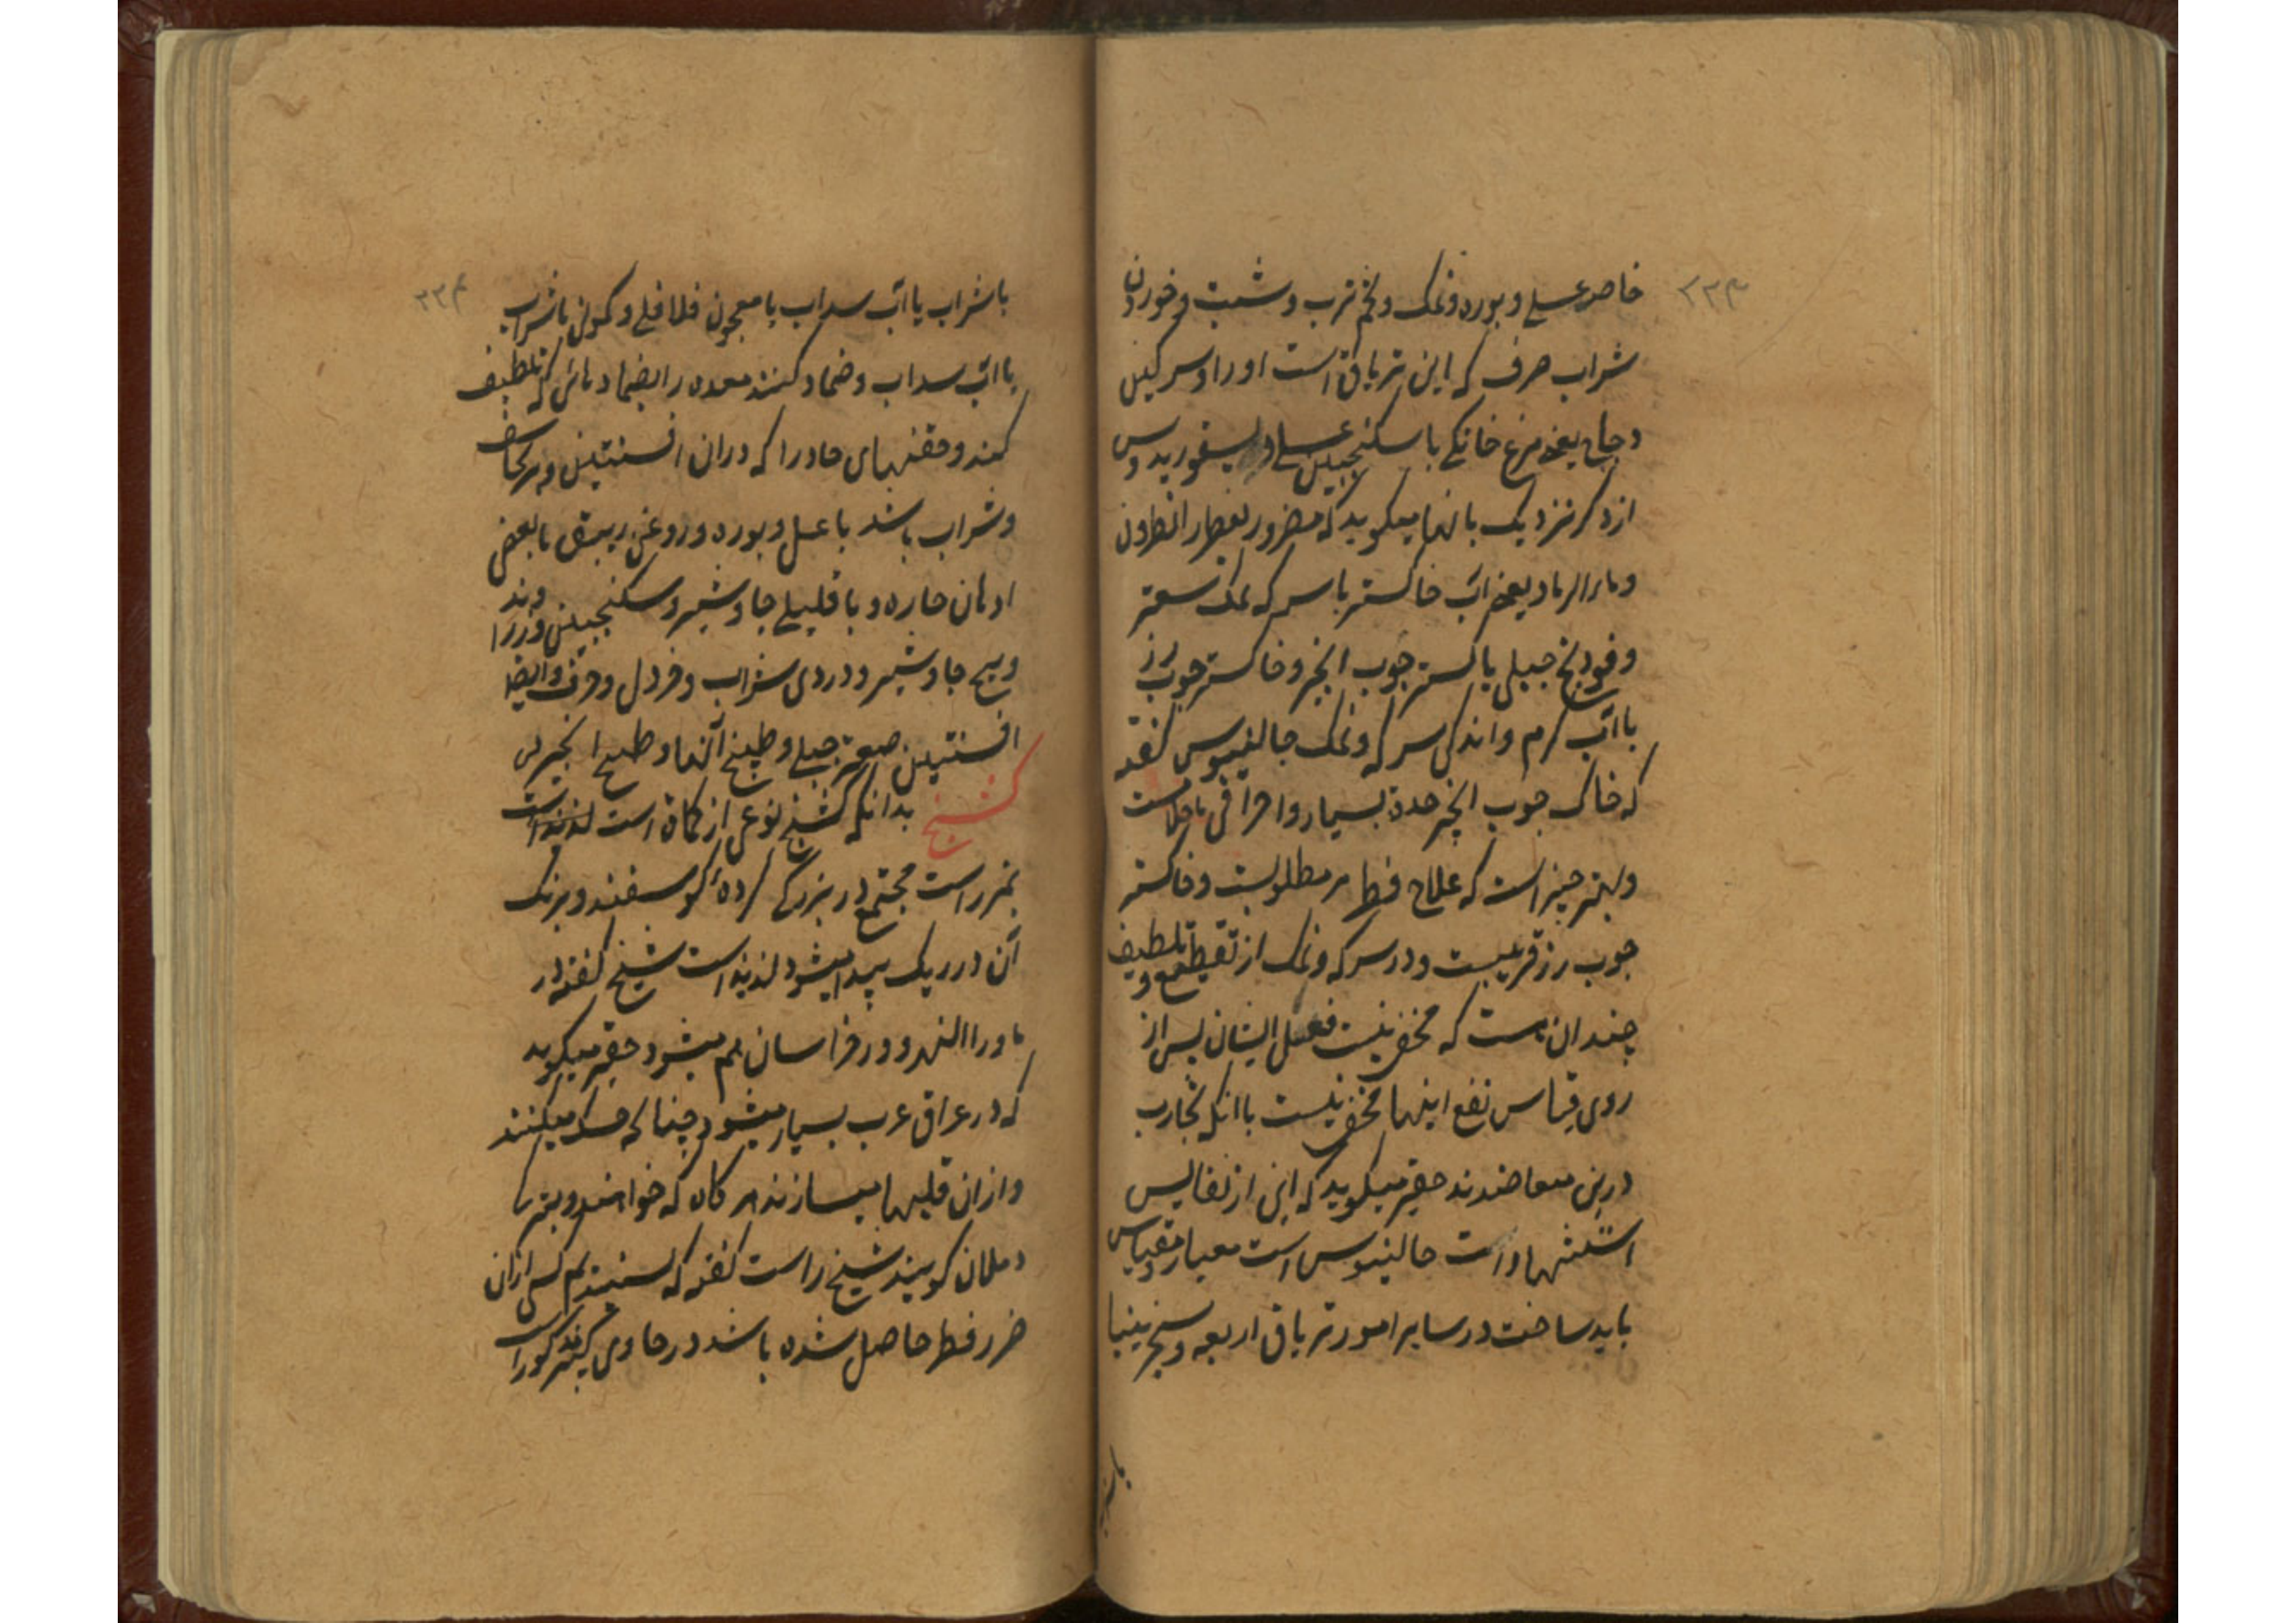 ۲۲۳
خاصه عسلی و بوره و نمک و تخم ترب و شبت و خوردن
شراب صرف که این تریاق است او را و سرکین
دجاج یعنی مرغ خانکی با سکنجبین عسلی و دیسقوریدوس
از ذکر نزدیک بانها میکوید که مضرور بفطر را نطرون
و ماء الرماد یعنی اب خاکستر با سرکه نمک سعتر
و فودنج جبلی یا کستر جوب انجیر و خاکستر جوب رز
با اب کرم و اندکی سرکه و نمک جالینوس کفته
که خاک جوب انجیر حدة بسیار و احراقی با جلاست
و بهتر چیز است که علاج فطر مر مطلوبست و خاکستر
جوب رز قریبست و در سرکه و نمک از تقطیع و تلطیف
چندان هست که مخفی نیست فعل ایشان پس از
روی قیاس نفع اینها مخفی نیست با انکه تجارب
درین معاضدند حقیر میکوید که این از نفایس
استشهادات جالینوس است معیار و مقیاس
باید ساخت در سایر امور تریاق اربعه و سنجرینیا
با شراب
۲۲۴
با شراب یا اب سداب یا معجون فلافلی و کمونی با شراب
یا اب سداب و ضماد کنند معده را بضمادهائی که تلطیف
کند و حقنهای حاد را که دران افسنتین و برنجاسف
و شراب باشد با عسل و بوره و روغن زیبق یا بعض
ادهان حاره و با قلیلی جاوشیر و سکنجبین و زراوند
و بیخ جاوشیر و دردی شراب و خردل و حرف و ایضا
افسنتین صعتر جبلی و طبیخ آنها و طبیخ انجیر س
کشنج بدانکه کشنج نوعی از کماة است لذیذ است
نمر راست مجتمع در بزرگی کرده کوسفند و برنک
آن در ریک پیدا میشود لذیذ است شیخ کفته در
ماوراالنهر و در خراسان هم میشود حقیر میکوید
که در عراق عرب بسیار میشود چنانکه خشک میکنند
و از ان قلیها میسازند هر کاه که خواهند و بترکی
دملان کویند شیخ راست کفته که نشنیدیم کسی از ان
ضرر فطر حاصل شده باشد در حاوی کبیر مذکور است